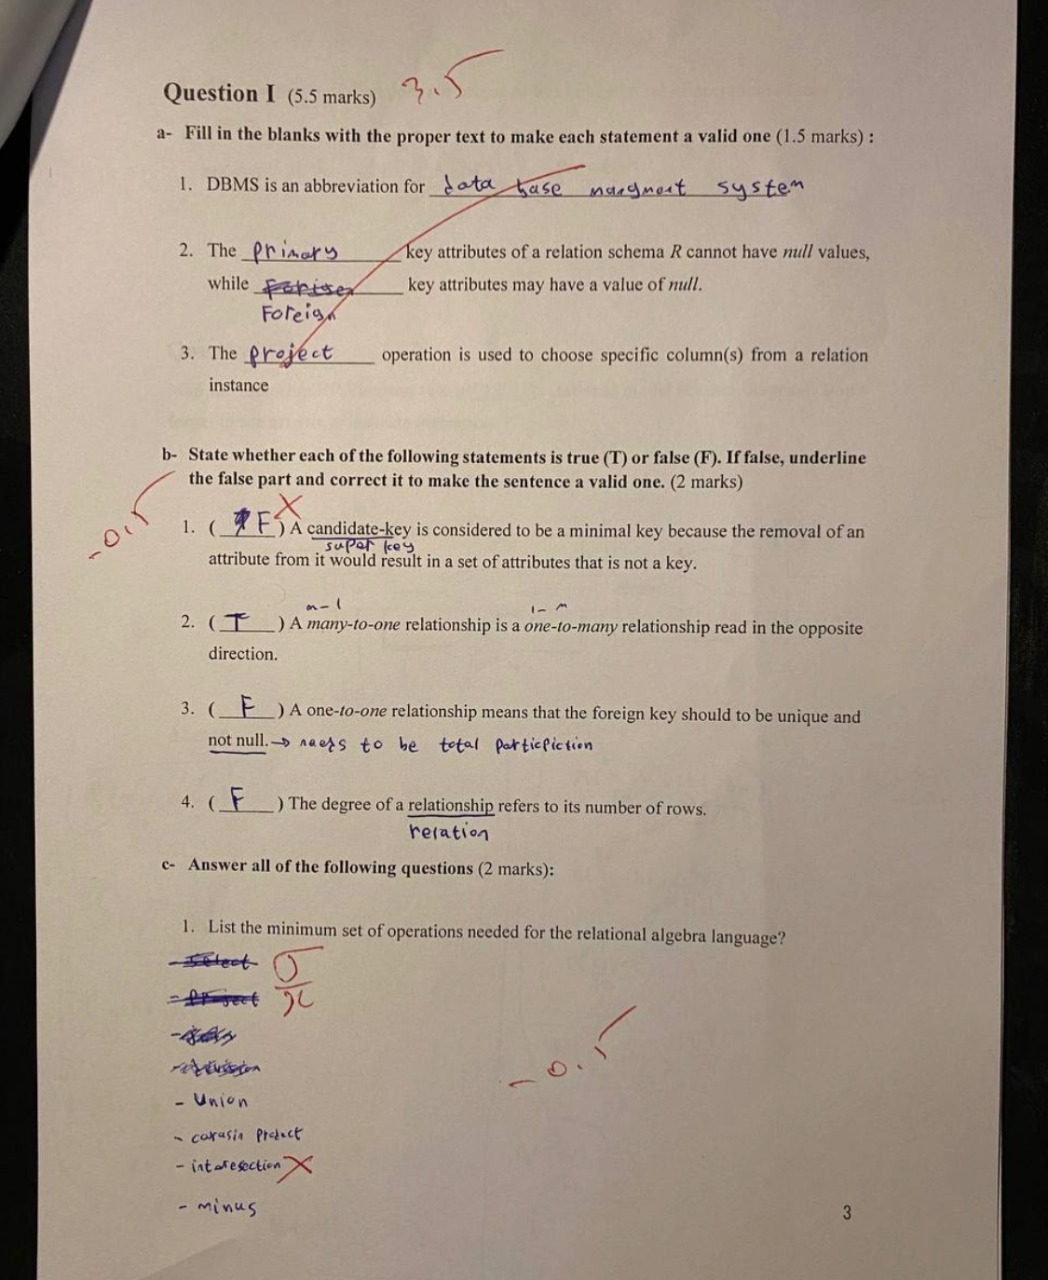 Question I (5.5 marks) 3.5
a- Fill in the blanks with the proper text to make each statement a valid one (1.5 marks) :
1. DBMS is an abbreviation for data base system
2. The primary key attributes of a relation schema R cannot have null values,
while key attributes may have a value of null.
Foreign
3. The project operation is used to choose specific column(s) from a relation
instance
b- State whether each of the following statements is true (T) or false (F). If false, underline
the false part and correct it to make the sentence a valid one. (2 marks)
-0.5
1. ( F ) A candidate-key is considered to be a minimal key because the removal of an
super key
attribute from it would result in a set of attributes that is not a key.
m-1 1-m
2. ( T ) A many-to-one relationship is a one-to-many relationship read in the opposite
direction.
3. ( F ) A one-to-one relationship means that the foreign key should to be unique and
not null. → needs to be total
4. ( F ) The degree of a relationship refers to its number of rows.
relation
c- Answer all of the following questions (2 marks):
1. List the minimum set of operations needed for the relational algebra language?
- select σ
- project π
-0.5
- Union
- product
- intersection X
- minus
3